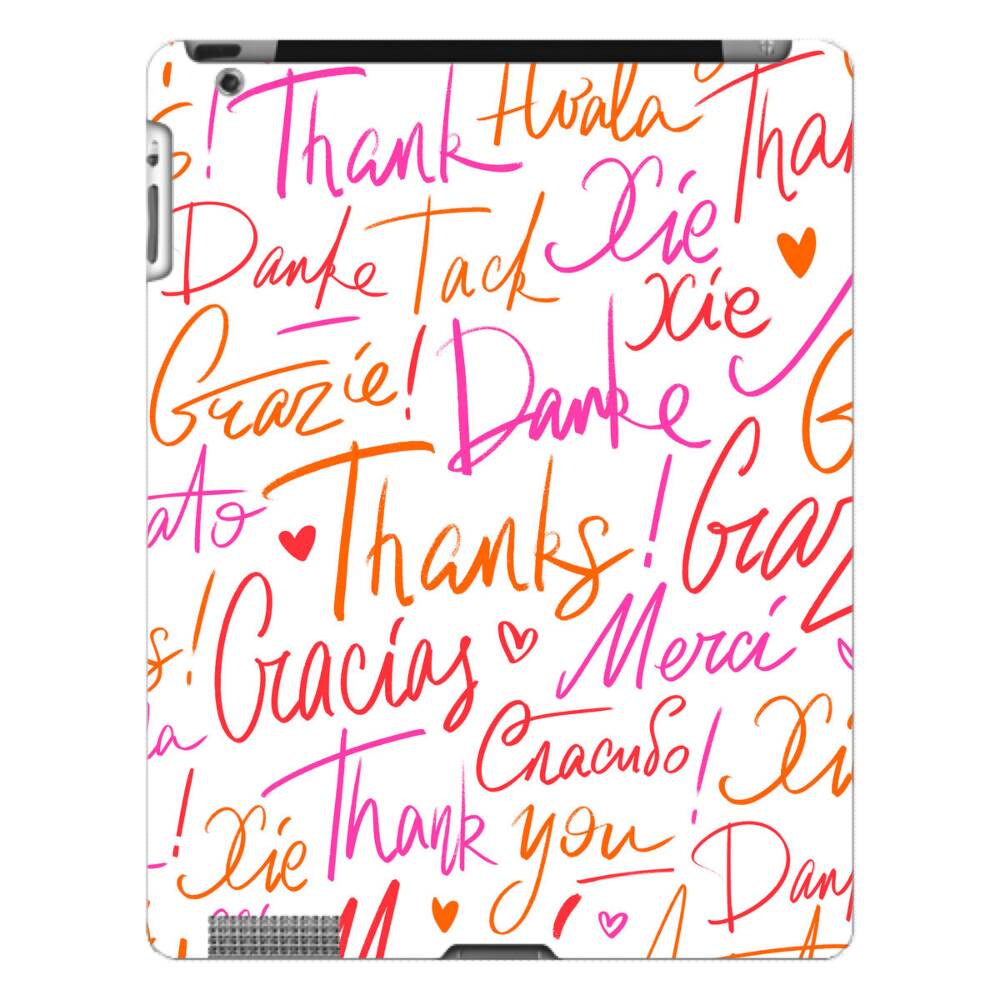 ! Thank Hvala Thank
Danke Tack Xie
Xie
Grazie! Danke
Thanks! Graz
Gracias Merci
Спасибо!
Xie Thank you Xi
Dan